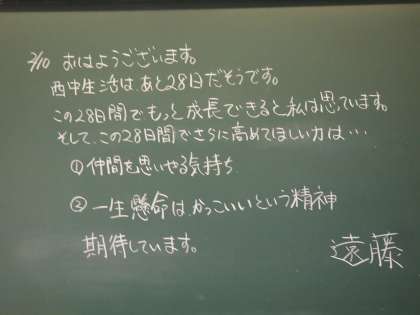 2/10 おはようございます。
西中生活は、あと28日だそうです。
この28日間でもっと成長できると私は思っています。
そして、この28日間でさらに高めてほしい力は…
①仲間を思いやる気持ち
②一生懸命は、かっこいいという精神
期待しています。
遠藤